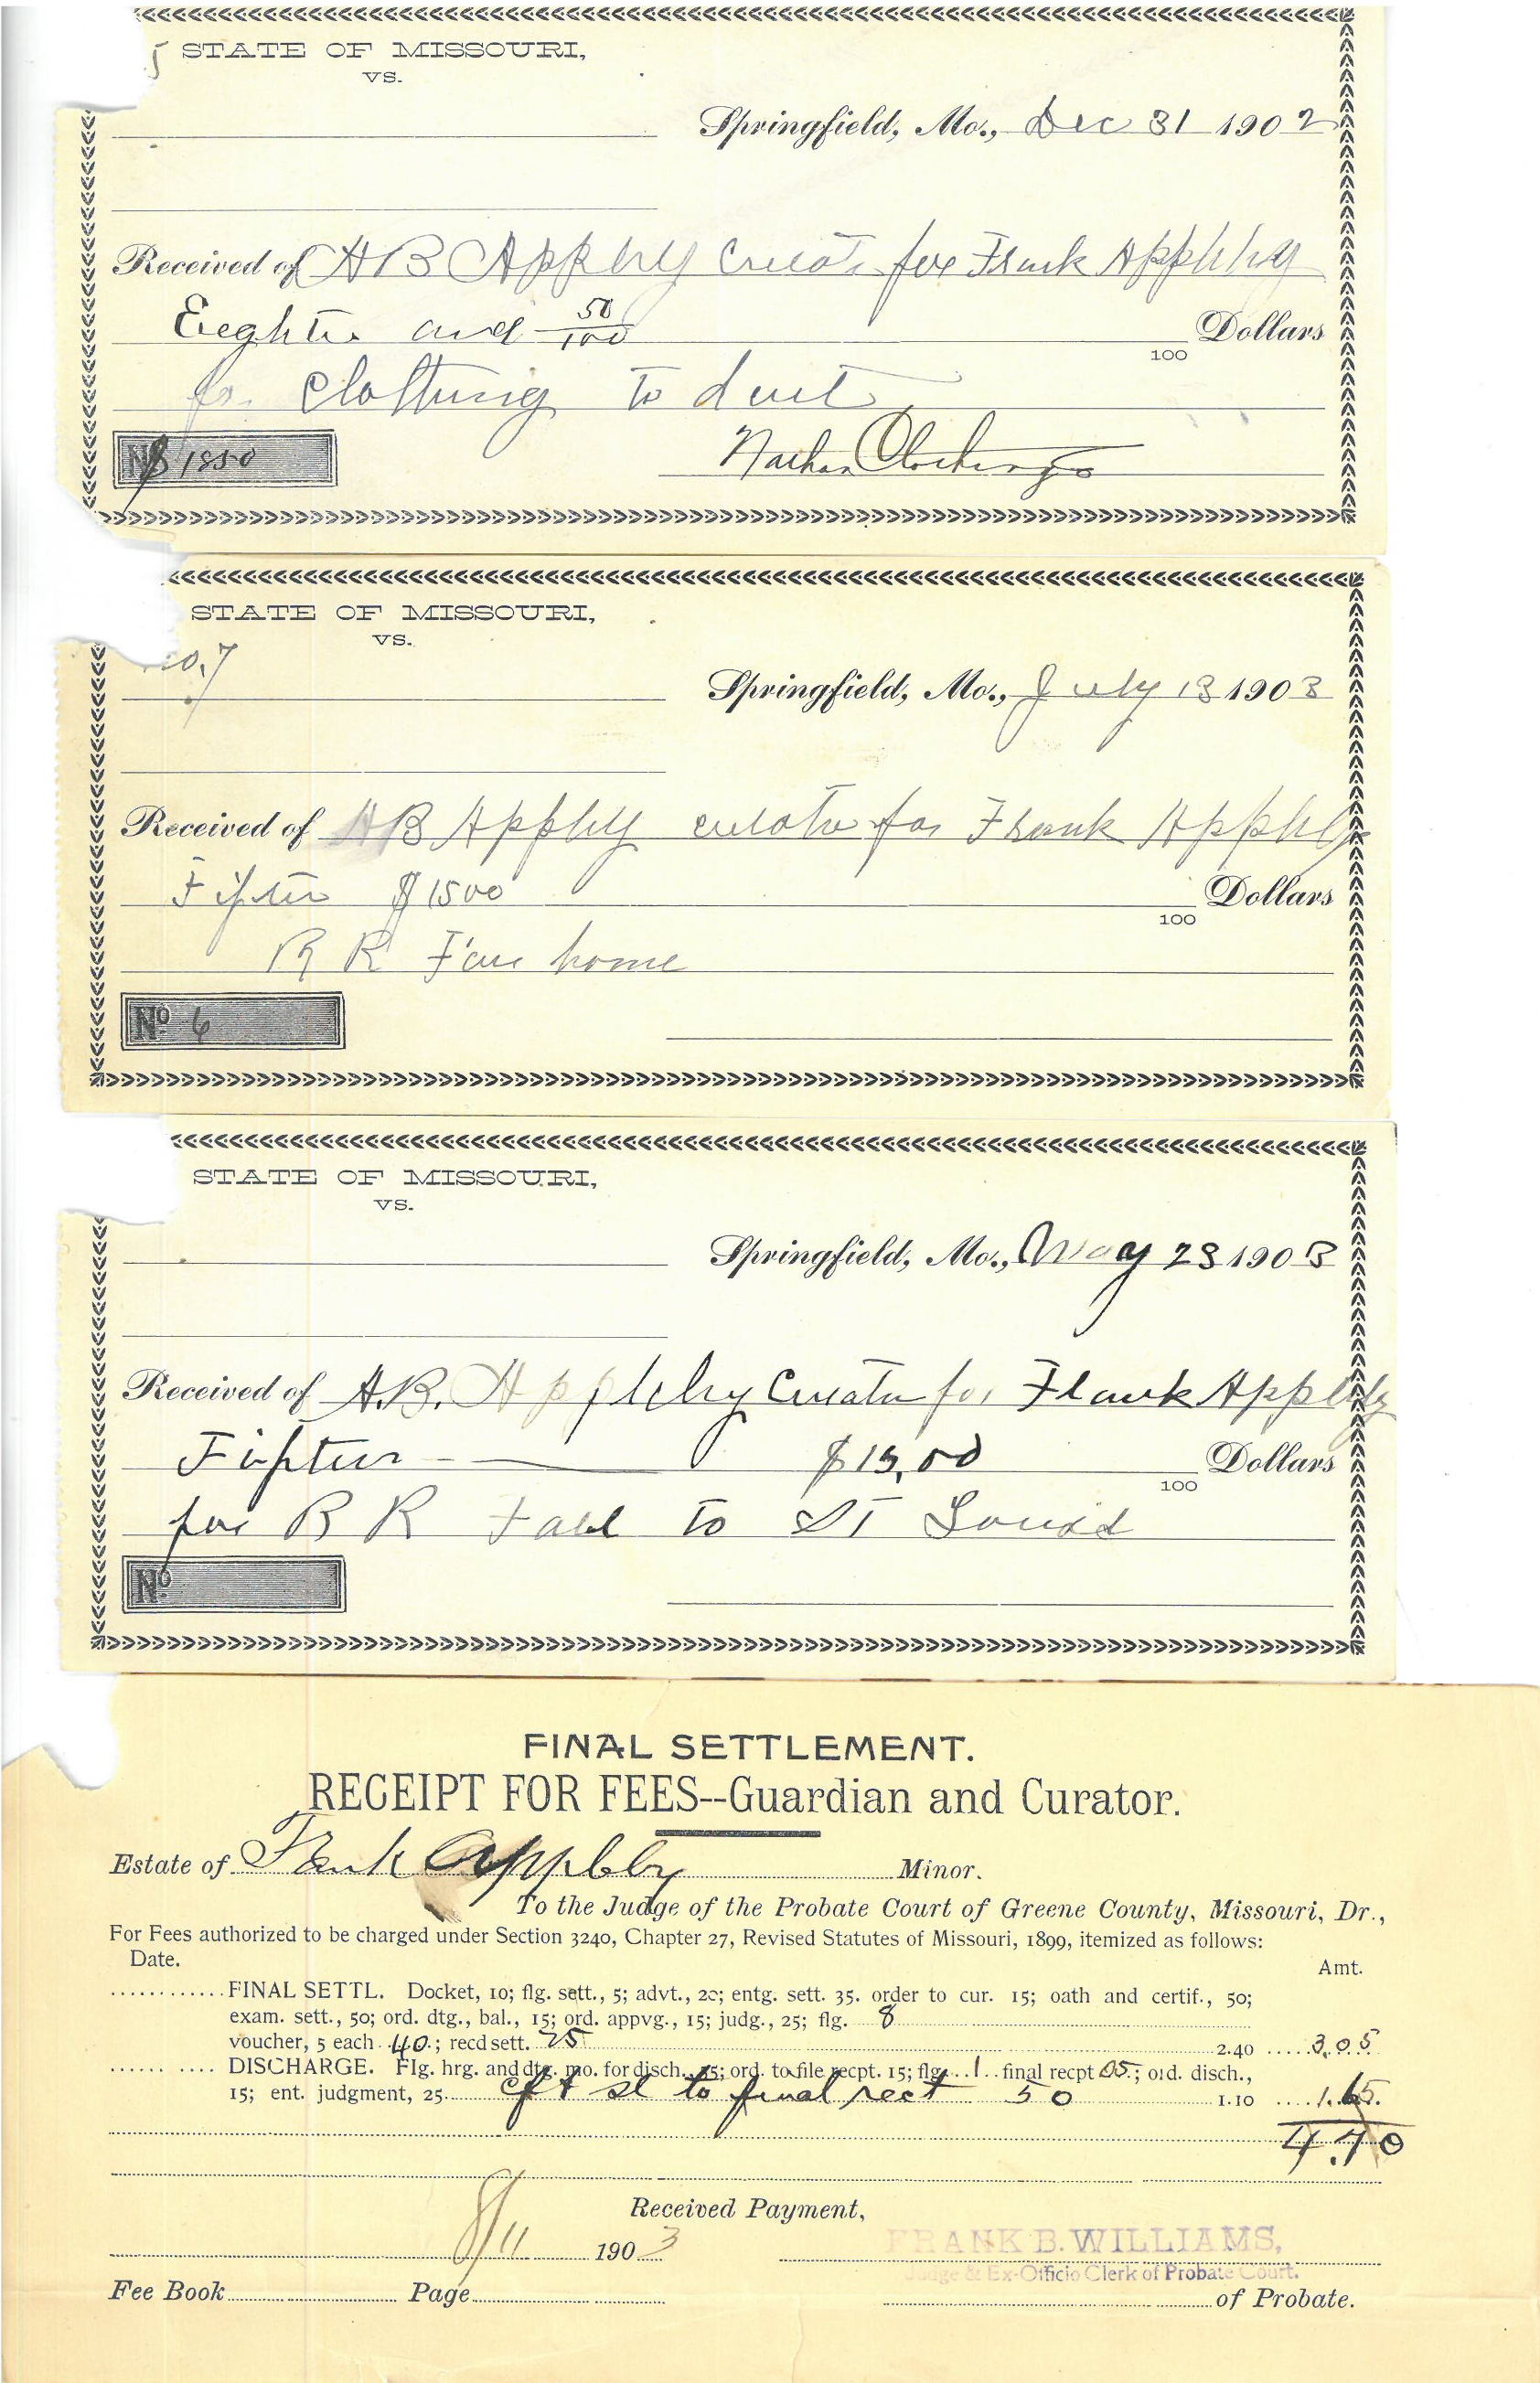 5 STATE OF MISSOURI,
VS.
Springfield, Mo., Dec 31 1902
Received of A B Appleby Curator for Frank Appleby
Eighteen and 50/100 100 Dollars
for Clothing to date
$1850
Nathan Clothing Co
STATE OF MISSOURI,
VS.
No. 7
Springfield, Mo., July 13 1903
Received of A B Appleby curator for Frank Appleby
Fifteen $1500 100 Dollars
R R Fare home
No 6
STATE OF MISSOURI,
VS.
Springfield, Mo., May 23 1903
Received of A.B. Appleby Curator for Frank Appleby
Fifteen $15,00 100 Dollars
for R R Fare to St Louis
No
FINAL SETTLEMENT.
RECEIPT FOR FEES--Guardian and Curator.
Estate of Frank Appleby Minor.
To the Judge of the Probate Court of Greene County, Missouri, Dr.,
For Fees authorized to be charged under Section 3240, Chapter 27, Revised Statutes of Missouri, 1899, itemized as follows:
Date. Amt.
FINAL SETTL. Docket, 10; flg. sett., 5; advt., 20; entg. sett. 35. order to cur. 15; oath and certif., 50;
exam. sett., 50; ord. dtg., bal., 15; ord. appvg., 15; judg., 25; flg. 8
voucher, 5 each 40; recd sett. 25 2.40 3.05
DISCHARGE. Flg. hrg. and dtg. mo. for disch. 15; ord. to file recpt. 15; flg. 1 final recpt 05; ord. disch.,
15; ent. judgment, 25. to final rect 50 1.10 1.65.
4.70
Received Payment,
8/11 1903 FRANK B. WILLIAMS,
Judge & Ex-Officio Clerk of Probate Court.
Fee Book Page of Probate.